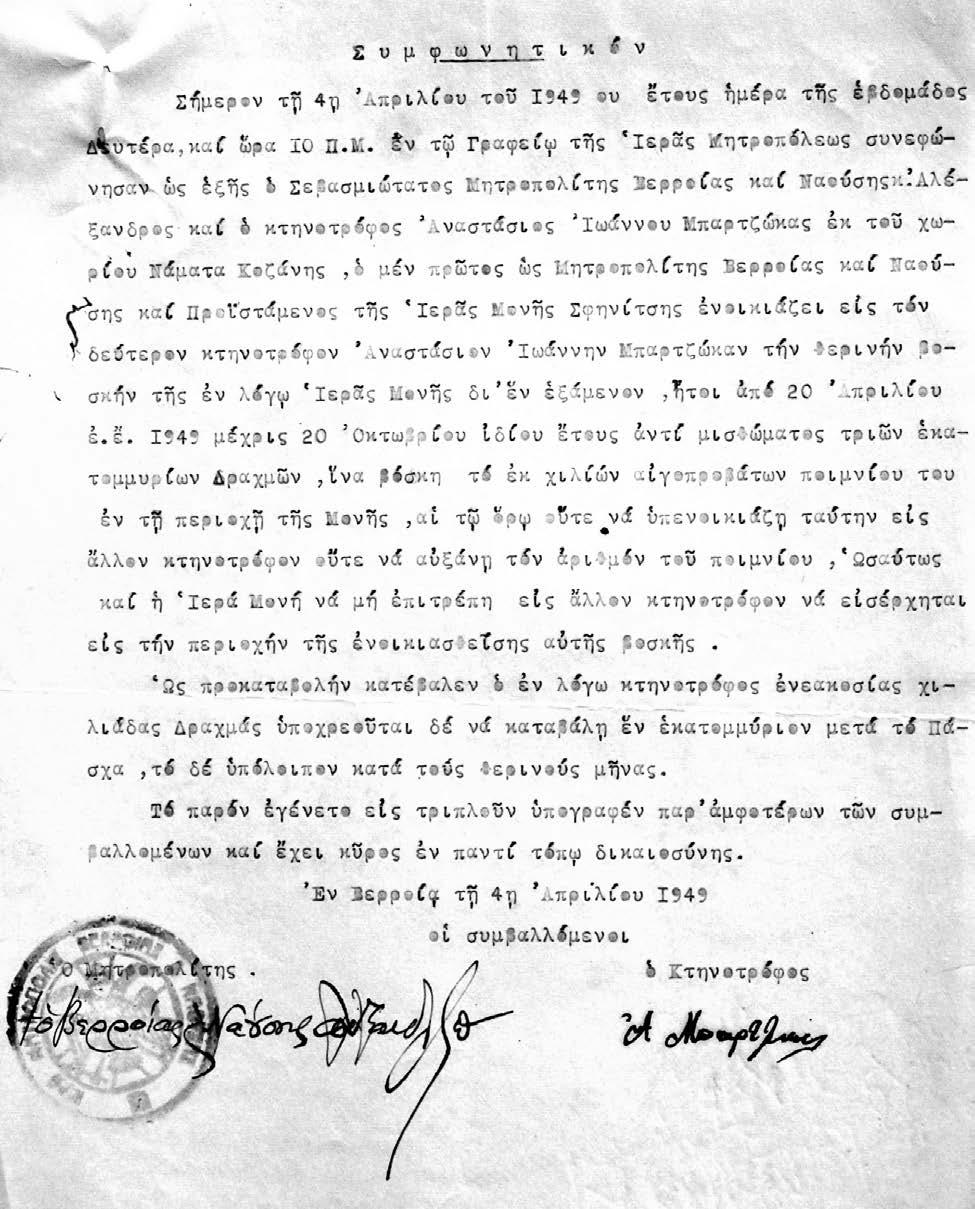 Συμφωνητικόν
Σήμερον τῇ 4η Ἀπριλίου τοῦ 1949 ου ἔτους ἡμέρα τῆς ἑβδομάδος
Δευτέρα, καί ὥρα 10 Π.Μ. ἐν τῷ Γραφείῳ τῆς Ἱερᾶς Μητροπόλεως συνεφώ-
νησαν ὡς ἑξῆς ὁ Σεβασμιώτατος Μητροπολίτης Βερροίας καί Ναούσης κ. Ἀλέ-
ξανδρος καί ὁ κτηνοτρόφος Ἀναστάσιος Ἰωάννου Μπαρτζώκας ἐκ τοῦ χω-
ρίου Νάματα Κοζάνης , ὁ μέν πρῶτος ὡς Μητροπολίτης Βερροίας καί Ναού-
σης καί Προϊστάμενος τῆς Ἱερᾶς Μονῆς Σφηνίτσης ἐνοικιάζει εἰς τόν
δεύτερον κτηνοτρόφον Ἀναστάσιον Ἰωάννην Μπαρτζώκαν τήν θερινήν βο-
σκήν τῆς ἐν λόγῳ Ἱερᾶς Μονῆς δι' ἕν ἑξάμενον , ἤτοι ἀπό 20 Ἀπριλίου
ἐ.ἔ. 1949 μέχρις 20 Ὀκτωβρίου ἰδίου ἔτους ἀντί μισθώματος τριῶν ἑκα-
τομμυρίων Δραχμῶν , ἵνα βόσκη τό ἐκ χιλίών αἰγοπροβάτων ποιμνίου του
ἐν τῇ περιοχῇ τῆς Μονῆς , αἱ τῷ ὅρῳ οὔτε νά ὑπενοικιάζῃ ταύτην εἰς
ἄλλον κτηνοτρόφον οὔτε νά αὐξάνῃ τόν ἀριθμόν τοῦ ποιμνίου , Ὡσαύτως
καί ἡ Ἱερά Μονή νά μή ἐπιτρέπῃ εἰς ἄλλον κτηνοτρόφον νά εἰσέρχηται
εἰς τήν περιοχήν τῆς ἐνοικιασθείσης αὐτῆς βοσκῆς .
Ὡς προκαταβολήν κατέβαλεν ὁ ἐν λόγω κτηνοτρόφος ἐνεακοσίας χι-
λιάδας Δραχμάς ὑποχρεοῦται δέ νά καταβάλῃ ἕν ἑκατομμύριον μετά τό Πά-
σχα , τό δέ ὑπόλοιπον κατά τούς θερινούς μῆνας.
Τό παρόν ἐγένετο εἰς τριπλοῦν ὑπογραφέν παρ' ἀμφοτέρων τῶν συμ-
βαλλομένων καί ἔχει κῦρος ἐν παντί τόπῳ δικαιοσύνης.
Ἐν Βερροίᾳ τῇ 4η Ἀπριλίου 1949
οἱ συμβαλλόμενοι
Ο Μητροπολίτης . ὁ Κτηνοτρόφος